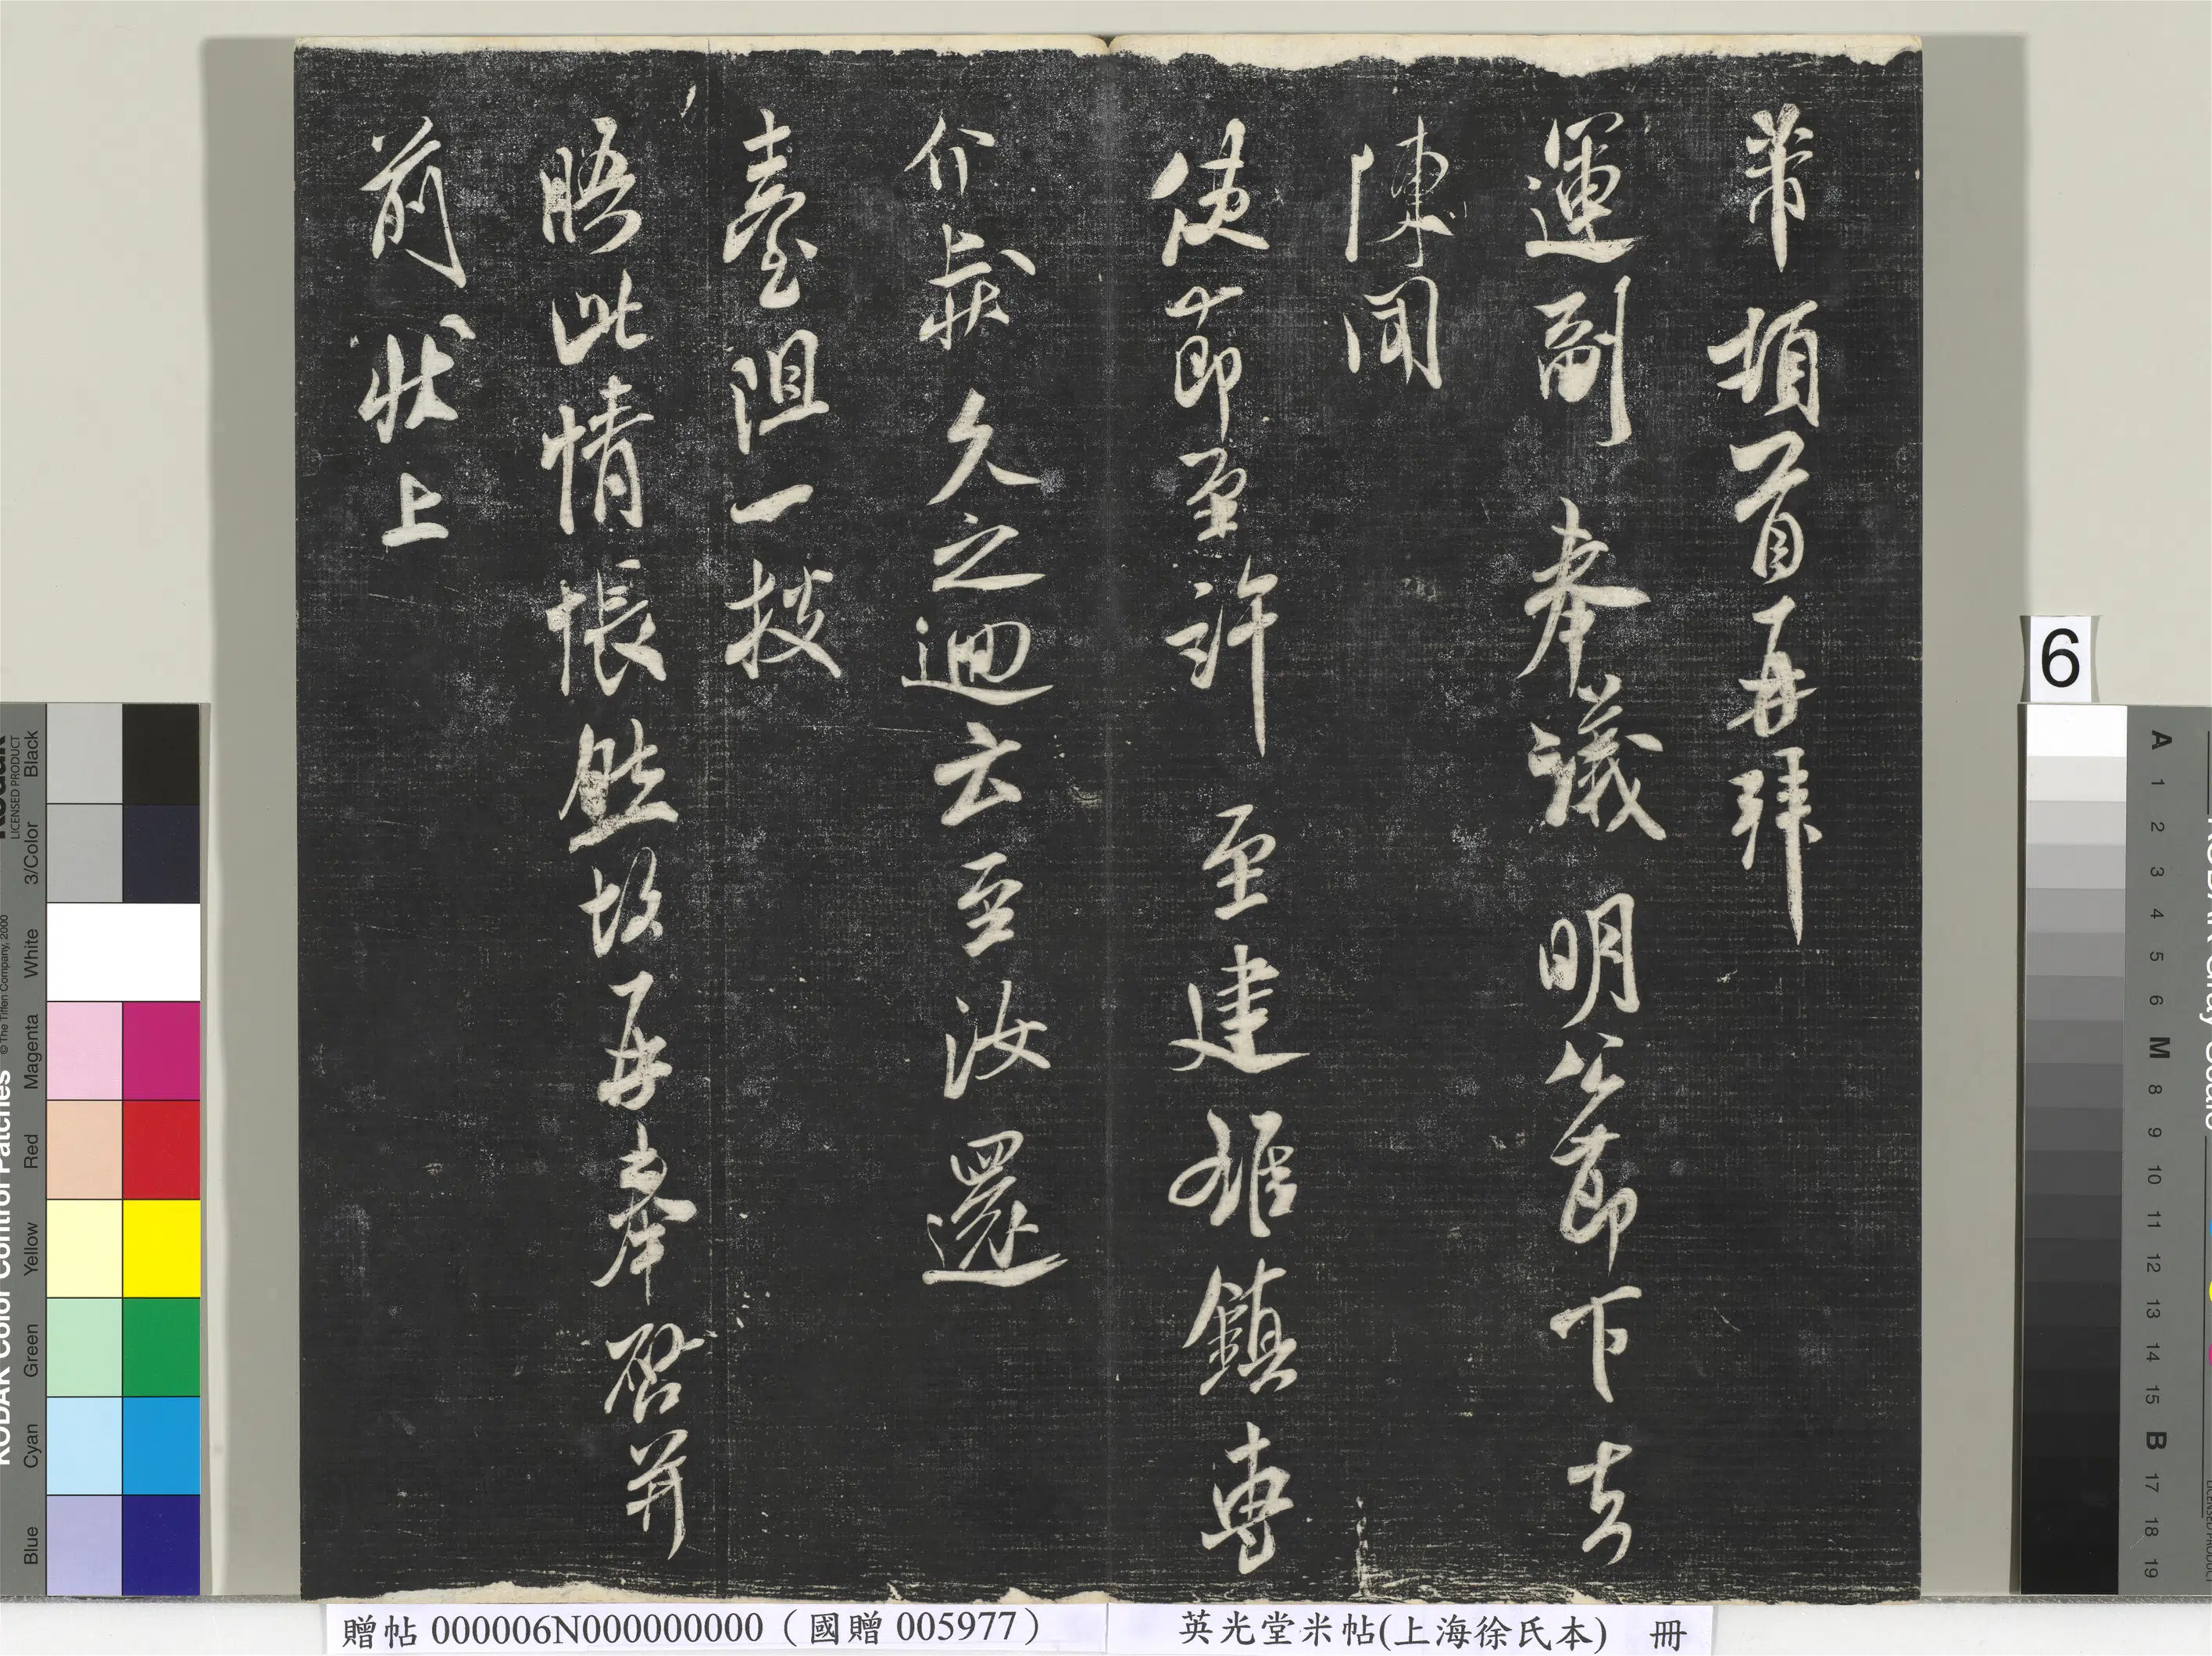 芾頓首再拜
運副奉議明公節下去
陳聞
使節至許至建雄鎮專
介哉久之迴云至汝還
臺阻一披
晤此情悵然故再奉啓并
前狀上
6
贈帖 000006N000000000（國贈 005977）
英光堂米帖(上海徐氏本) 冊
KODAK Color Control Patches
LICENSED PRODUCT
© The Tiffen Company, 2000
Blue Cyan Green Yellow Red Magenta White 3/Color Black
A 1 2 3 4 5 6 M 8 9 10 11 12 13 14 15 B 17 18 19